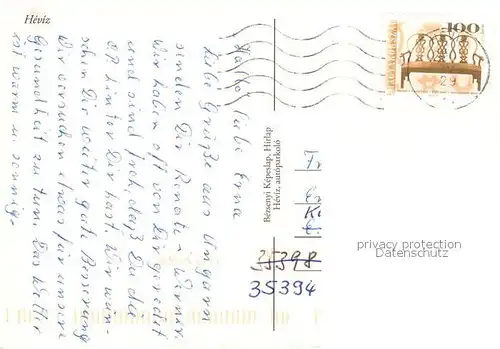 Hévíz
Hallo! liebe Erna
Liebe Grüße aus Ungarn
senden Dir Renate u. Werner.
Wir haben oft von Dir geredet
und sind froh, daß Du die
OP hinter Dir hast. Wir wün-
schen Dir weiter gute Besserung
Wir versuchen etwas für unsere
Gesundheit zu tun. Das Wetter
ist warm u. sonnig.
Berzsenyi Képeslap, Hírlap
Hévíz, autóparkoló
100
35398
35394
privacy protection
Datenschutz